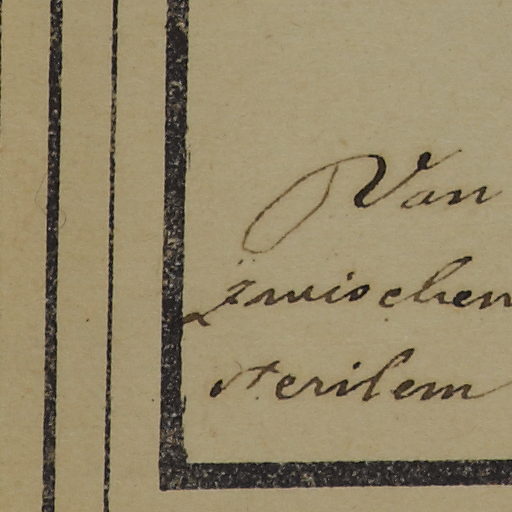 Van
zwischen
sterilem